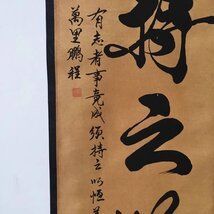 持之以
有志者事竟成須持之以恒
萬里鵬程